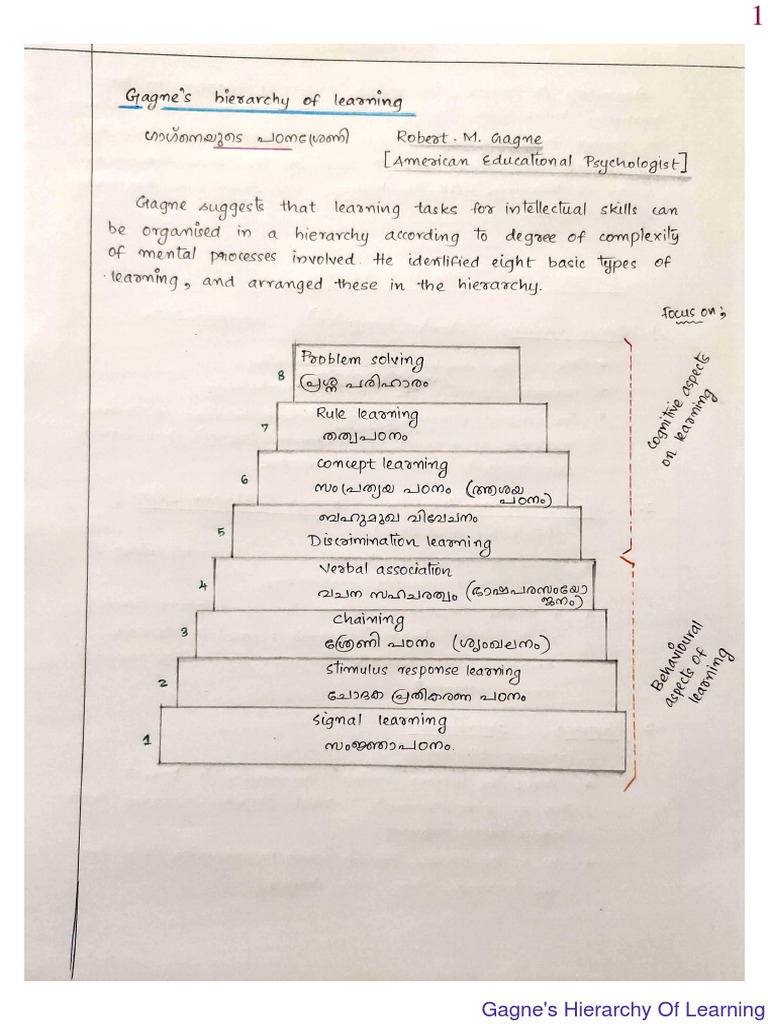 1
Gagne's hierarchy of learning
ഗാഗ്നെയുടെ പഠനശ്രേണി Robert. M. Gagne
[American Educational Psychologist]
Gagne suggests that learning tasks for intellectual skills can
be organised in a hierarchy according to degree of complexity
of mental processes involved. He identified eight basic types of
learning, and arranged these in the hierarchy.
Focus on;
8 Problem solving
പ്രശ്ന പരിഹാരം
7 Rule learning
തത്വപഠനം
6 Concept learning
സംപ്രത്യയ പഠനം (ആശയ
പഠനം)
5 ബഹുമുഖ വിവേചനം
Discrimination learning
Cognitive aspects
on learning
4 Verbal association
വചന സഹചരത്വം (ഭാഷപരസംയോ
ജനം)
3 Chaining
ശ്രേണി പഠനം (ശൃംഖലനം)
2 Stimulus response learning
ചോദക പ്രതികരണ പഠനം
1 Signal learning
സംജ്ഞാപഠനം.
Behavioural
aspects of
learning
Gagne's Hierarchy Of Learning